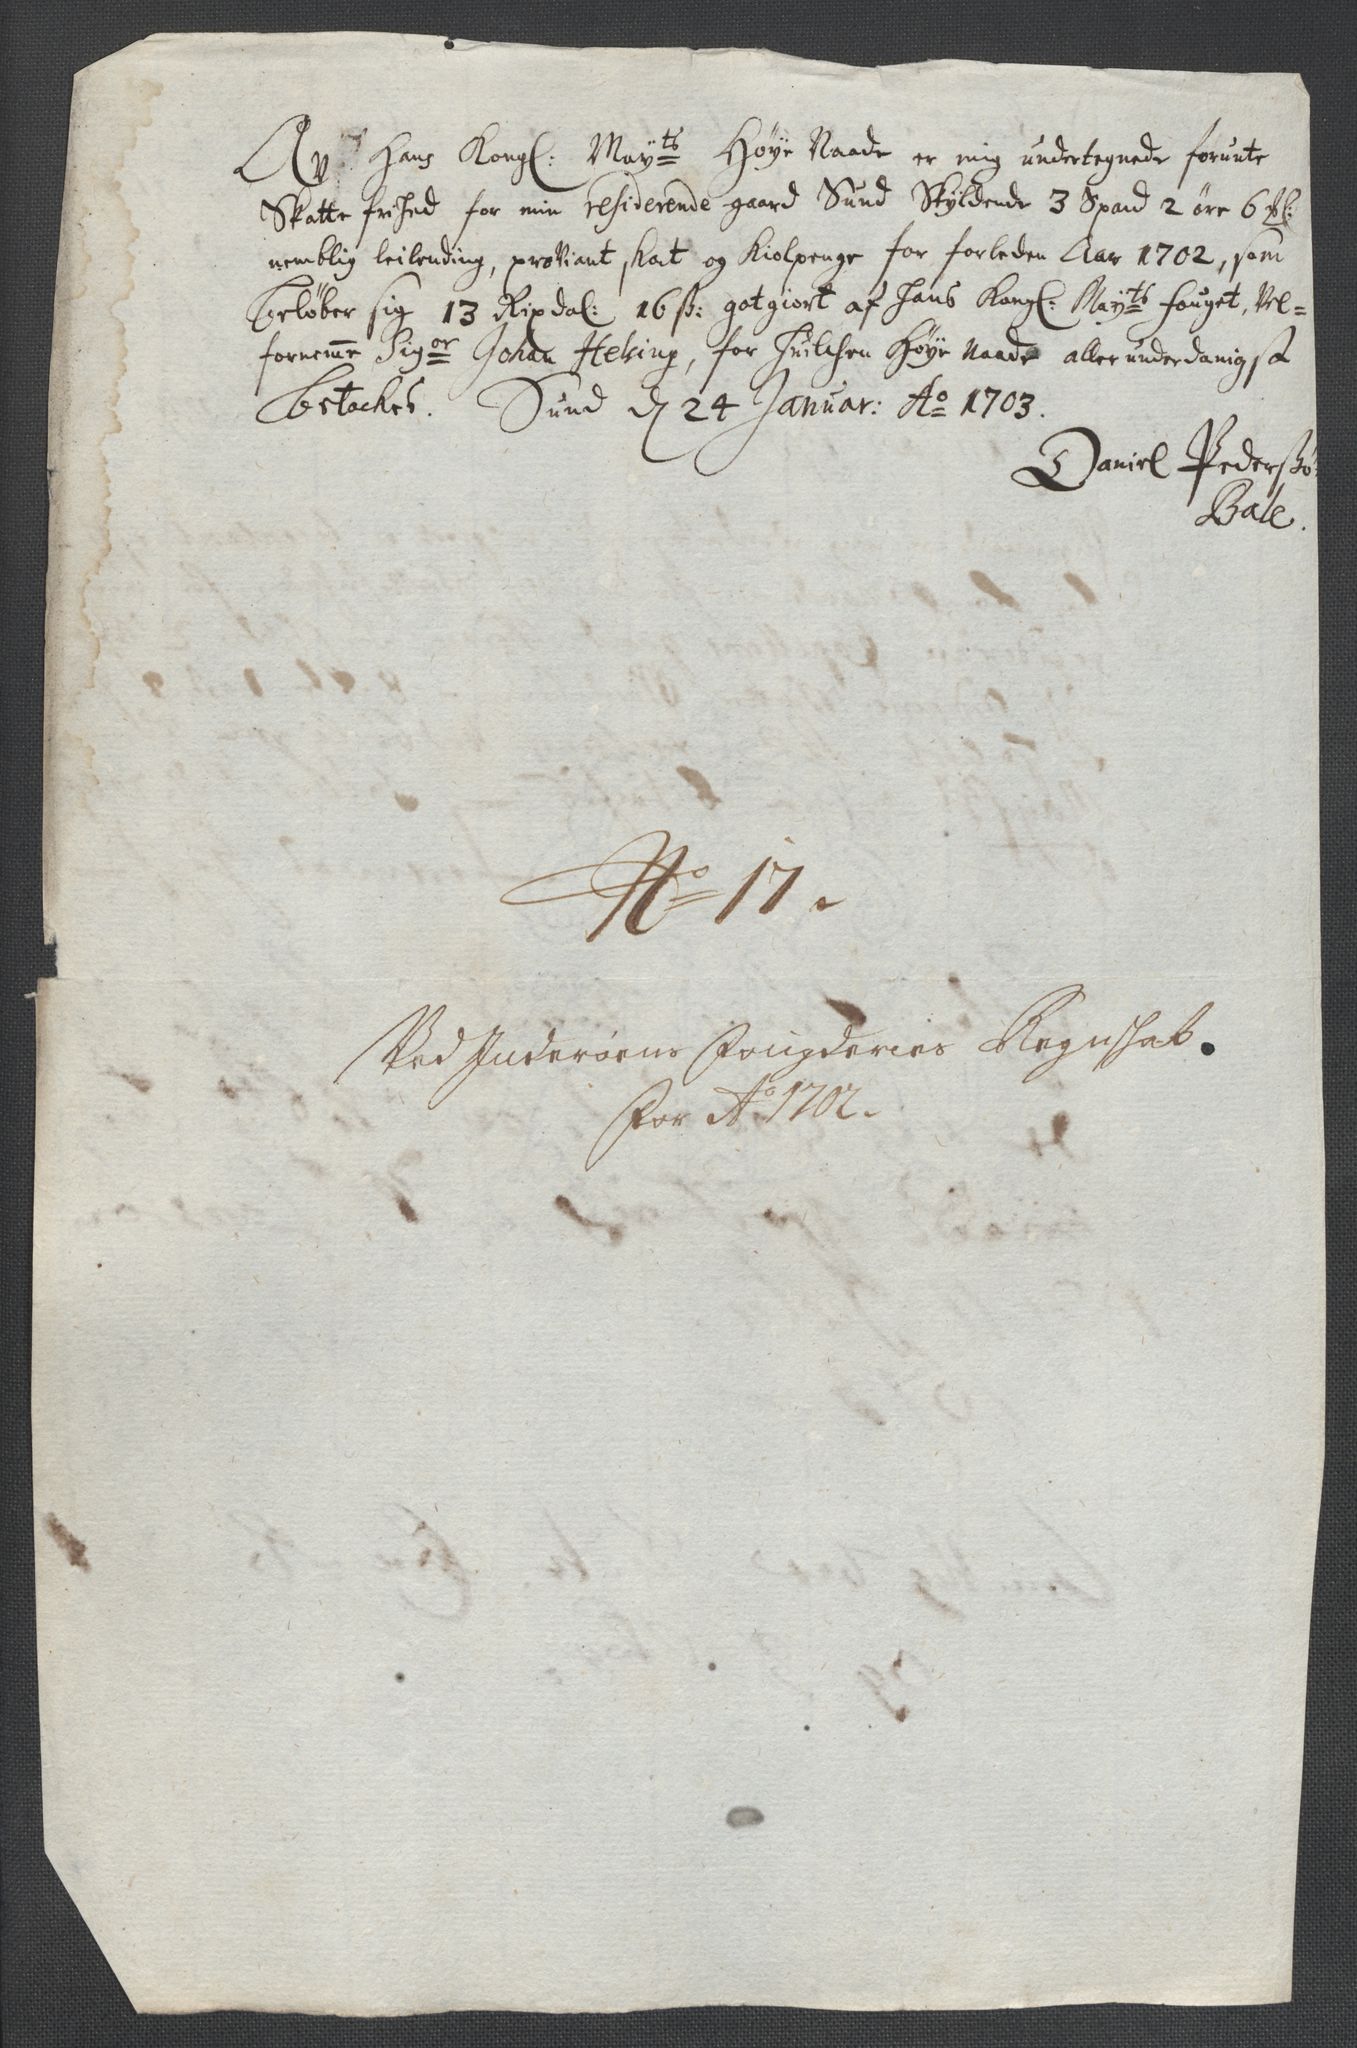 Av Hans Kongl: May:ts Høye Naade er mig undertegnede forunte
Skatte frihed for min residerende gaard Sund Skyldende 3 Spand 2 øre 6
nemblig leilending, proviant skat og Kiolpenge for forleden Aar 1702, som
beløber sig 13 Rixdal: 16 ß: gotgiort af Hans Kongl: May:ts fouget, Vel=
forneme Sig:or Johan Helsing, for huilchen Høye Naade allerunderdanigst
betackes. Sund d 24 Januar: Ao 1703.
Daniel Pederssø:
Bale.
No 17.
Ved Inderøens Fougderies Regnskab.
For Ao 1702.